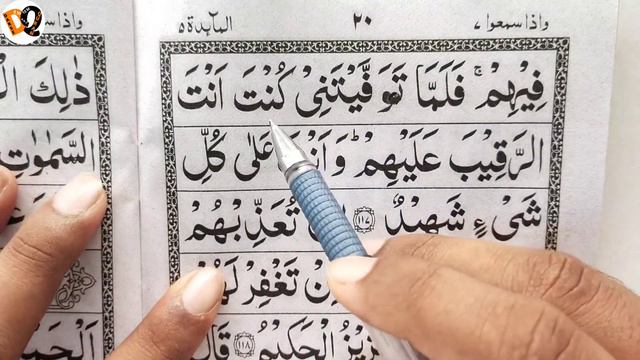 DQ
واذا سمعوا ٧
٢٠
المآىِٕدة ٥
فِيْهِمْ ۚ فَلَمَّا تَوَفَّيْتَنِىْ كُنْتَ اَنْتَ
الرَّقِيْبَ عَلَيْهِمْ ؕ وَاَنْتَ عَلٰى كُلِّ
شَىْءٍ شَهِيْدٌ ﴿١١٧﴾ تُعَذِّبْهُمْ
تَغْفِرْ لَهُمْ
الْحَكِيْمُ ﴿١١٨﴾ قَالَ
واذا س
ذٰلِكَ
السَّمٰوٰتِ